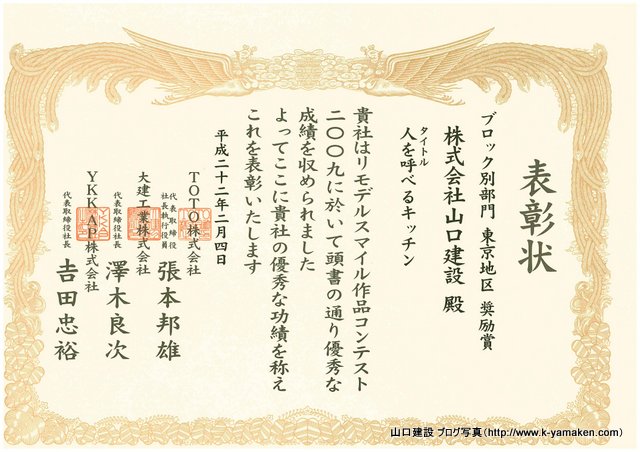 表彰状
ブロック別部門 東京地区 奨励賞
株式会社山口建設 殿
タイトル
人を呼べるキッチン
貴社はリモデルスマイル作品コンテスト
二〇〇九に於いて頭書の通り優秀な
成績を収められました
よってここに貴社の優秀な功績を称え
これを表彰いたします
平成二十二年二月四日
TOTO株式会社
代表取締役
社長執行役員
張本邦雄
大建工業株式会社
代表取締役社長
澤木良次
YKK AP株式会社
代表取締役社長
吉田忠裕
山口建設 ブログ写真(http://www.k-yamaken.com)